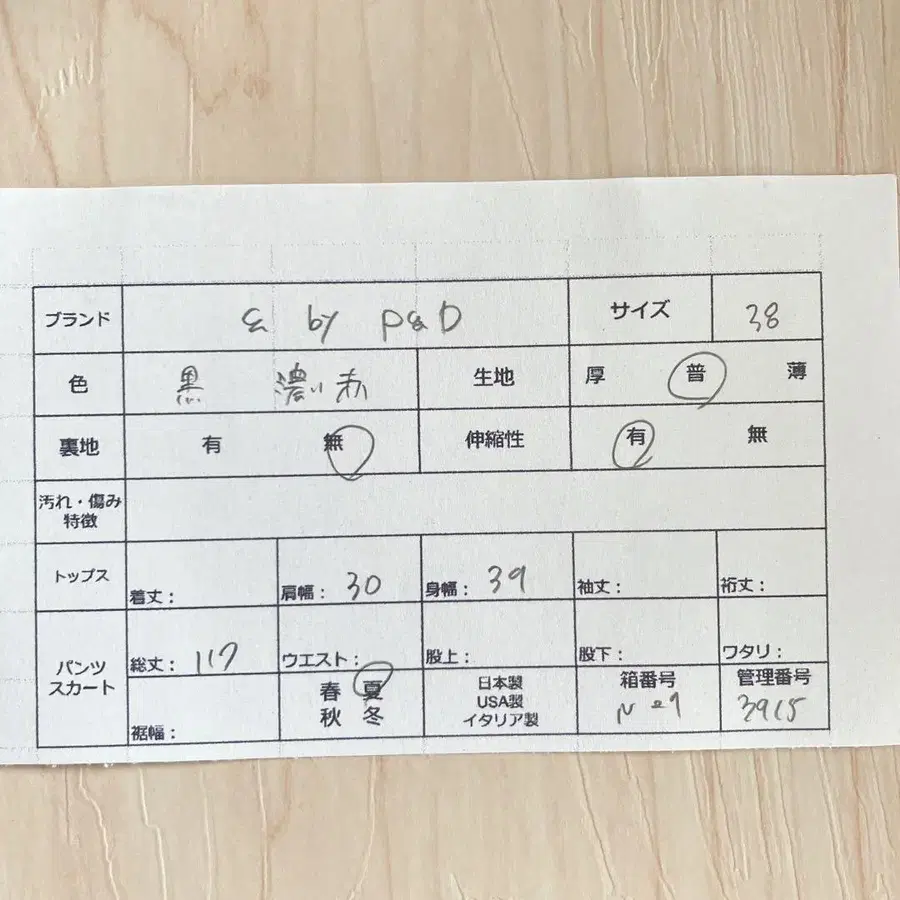 ブランド & by P&D サイズ 38
色 黒 濃い赤 生地 厚 普 薄
裏地 有 無 伸縮性 有 無
汚れ・傷み
特徴
トップス 着丈： 肩幅： 30 身幅： 39 袖丈： 裄丈：
パンツ
スカート
総丈： 117 ウエスト： 股上： 股下： ワタリ：
裾幅：
春 夏
秋 冬
日本製
USA製
イタリア製
箱番号
管理番号
3915